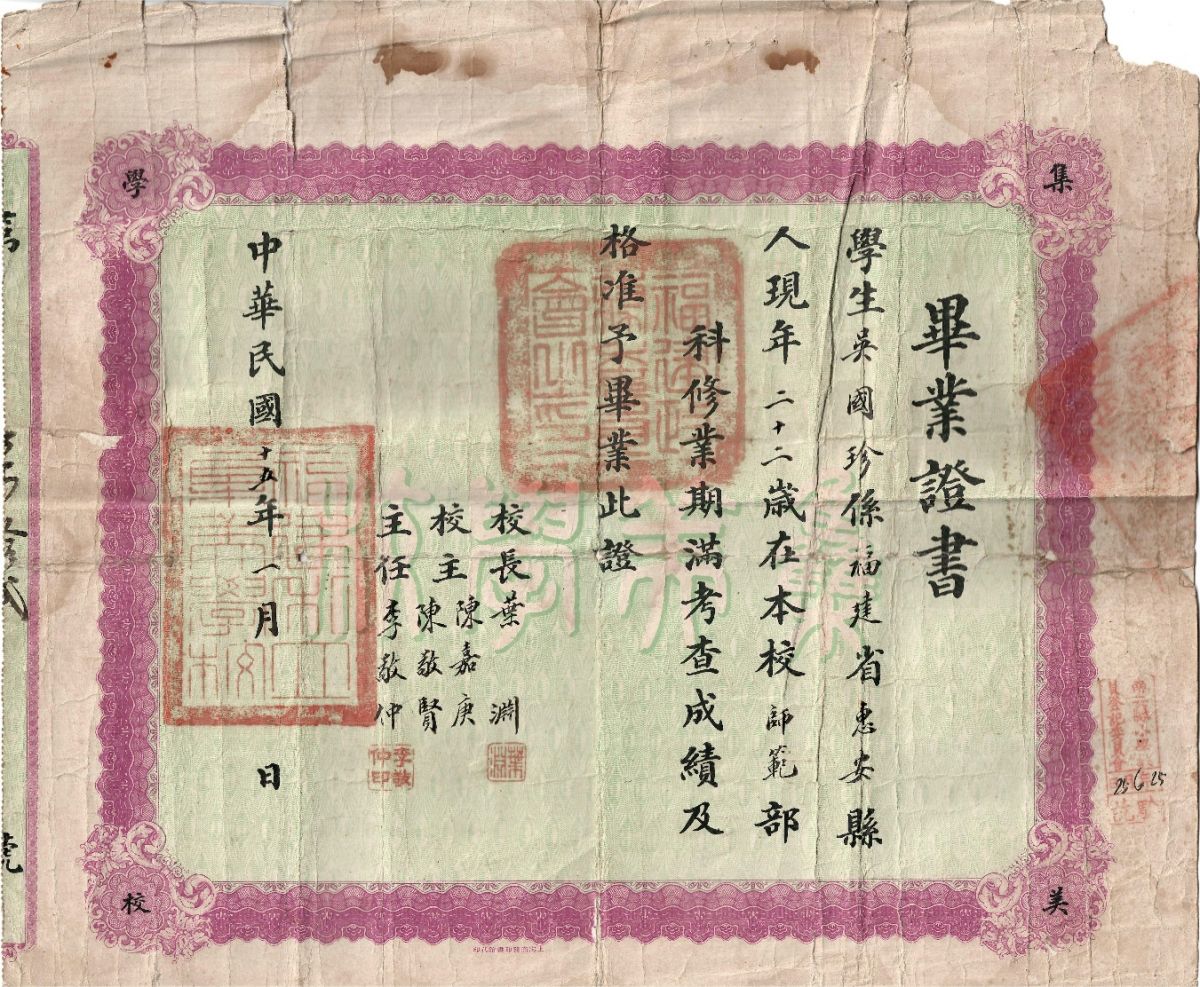 集美
學校
畢業證書
學生吳國珍係福建省惠安縣
人現年二十二歲在本校師範部
科修業期滿考查成績及
格准予畢業此證
校長葉淵
葉淵
校主陳嘉庚
陳敬賢
主任李敬仲
李敬仲印
中華民國十五年一月 日
25 6 25
號